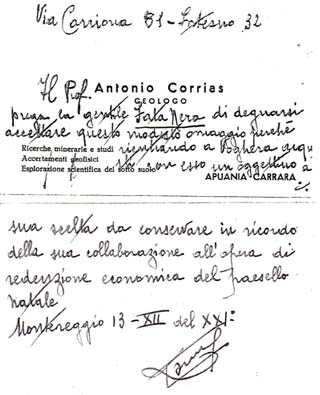 Via Carriona 81 - Interno 32
Il Prof. Antonio Corrias
GEOLOGO
prega la gentile Fata Nera di degnarsi
accettare questo modesto omaggio perchè
Ricerche minerarie e studi
rientrando a Voghera acqui
Accertamenti geofisici
sti con esso un oggettino a
Esplorazione scientifica del sotto suolo
APUANIA CARRARA
sua scelta da conservare in ricordo
della sua collaborazione all'opera di
redenzione economica del paesello
natale
Montereggio 13-XII del XXI°